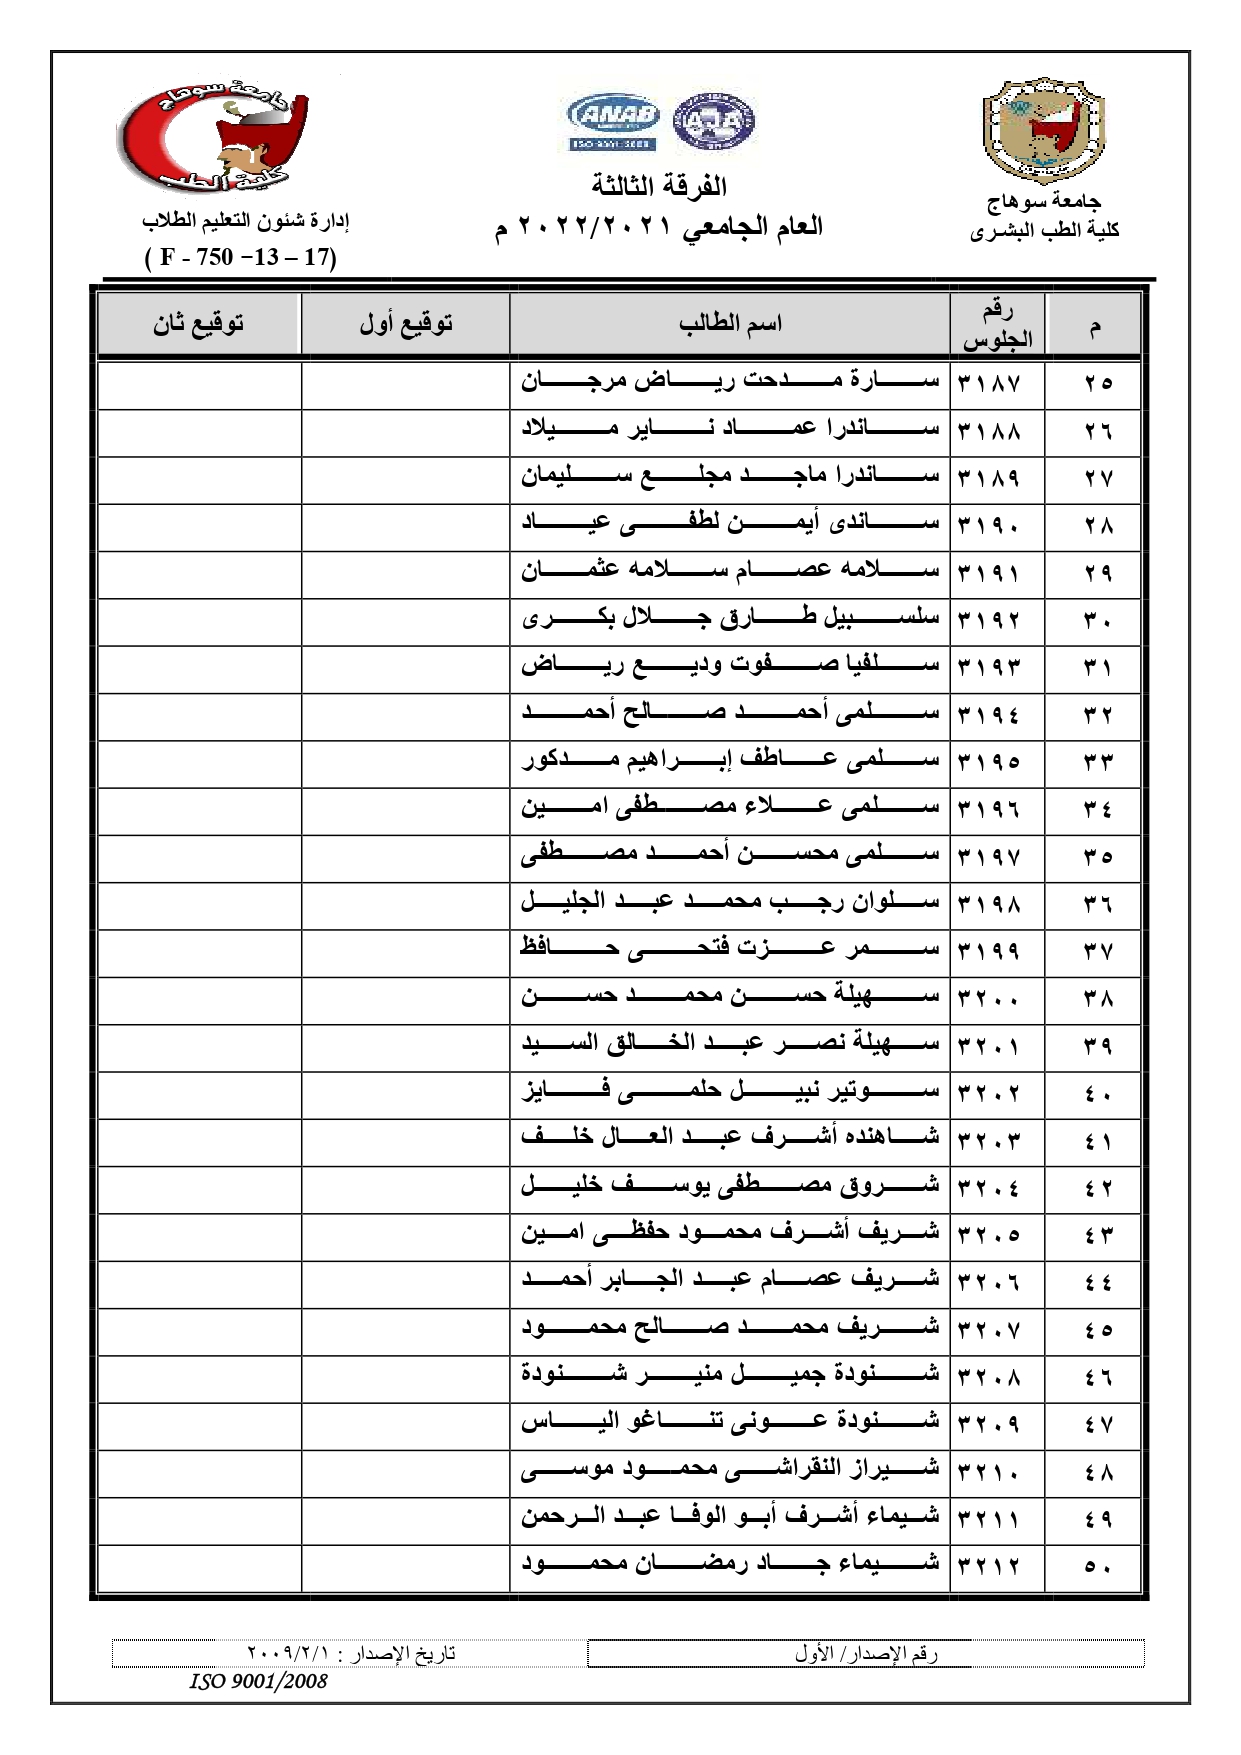 جامعة سوهاج
كلية الطب البشرى
ANAB
ISO 9001:2008
AJA
الفرقة الثالثة
العام الجامعي ٢٠٢٢/٢٠٢١ م
جامعة سوهاج
كلية الطب
إدارة شئون التعليم الطلاب
( F - 750 –13 – 17)
م رقم الجلوس اسم الطالب توقيع أول توقيع ثان
٢٥ ٣١٨٧ سارة مدحت رياض مرجان
٢٦ ٣١٨٨ ساندرا عماد ناير ميلاد
٢٧ ٣١٨٩ ساندرا ماجد مجلع سليمان
٢٨ ٣١٩٠ ساندى أيمن لطفى عياد
٢٩ ٣١٩١ سلامه عصام سلامه عثمان
٣٠ ٣١٩٢ سلسبيل طارق جلال بكرى
٣١ ٣١٩٣ سلفيا صفوت وديع رياض
٣٢ ٣١٩٤ سلمى أحمد صالح أحمد
٣٣ ٣١٩٥ سلمى عاطف إبراهيم مدكور
٣٤ ٣١٩٦ سلمى علاء مصطفى امين
٣٥ ٣١٩٧ سلمى محسن أحمد مصطفى
٣٦ ٣١٩٨ سلوان رجب محمد عبد الجليل
٣٧ ٣١٩٩ سمر عزت فتحى حافظ
٣٨ ٣٢٠٠ سهيلة حسن محمد حسن
٣٩ ٣٢٠١ سهيلة نصر عبد الخالق السيد
٤٠ ٣٢٠٢ سوتير نبيل حلمى فايز
٤١ ٣٢٠٣ شاهنده أشرف عبد العال خلف
٤٢ ٣٢٠٤ شروق مصطفى يوسف خليل
٤٣ ٣٢٠٥ شريف أشرف محمود حفظى امين
٤٤ ٣٢٠٦ شريف عصام عبد الجابر أحمد
٤٥ ٣٢٠٧ شريف محمد صالح محمود
٤٦ ٣٢٠٨ شنودة جميل منير شنودة
٤٧ ٣٢٠٩ شنودة عونى تناغو الياس
٤٨ ٣٢١٠ شيراز النقراشى محمود موسى
٤٩ ٣٢١١ شيماء أشرف أبو الوفا عبد الرحمن
٥٠ ٣٢١٢ شيماء جاد رمضان محمود
رقم الإصدار/ الأول
تاريخ الإصدار : ٢٠٠٩/٢/١
ISO 9001/2008